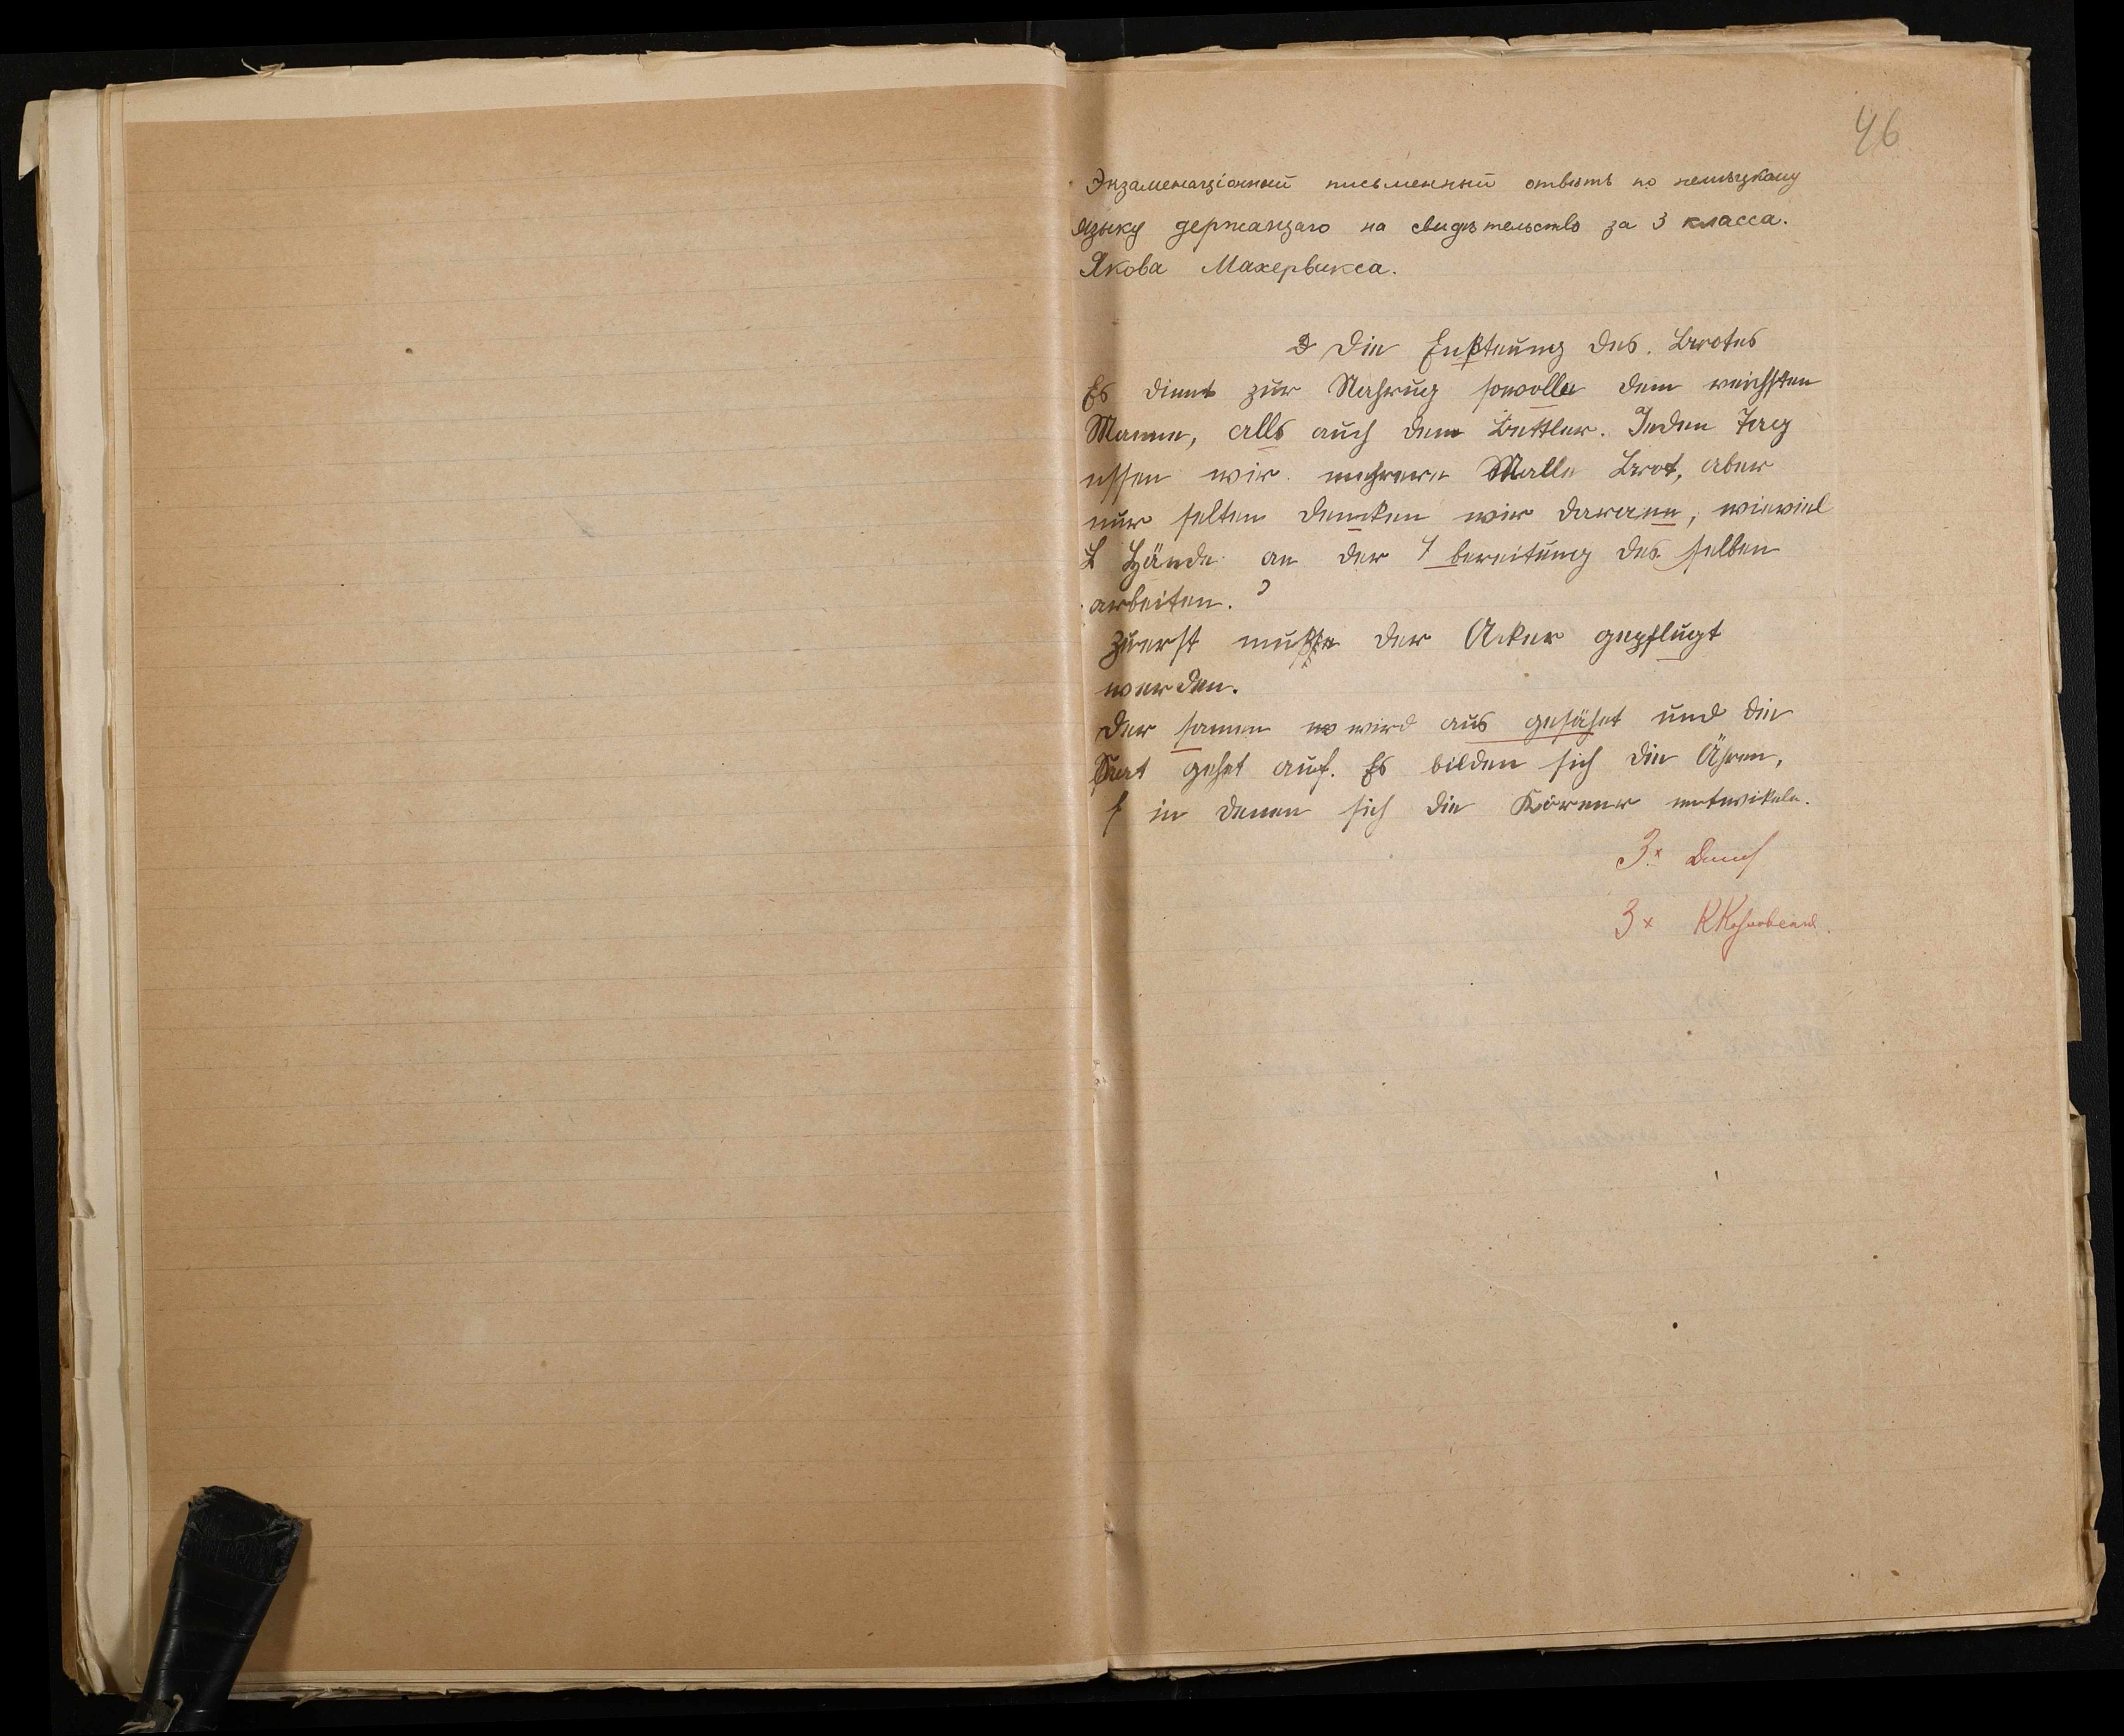 46
Экзаменаціонный письменный отвѣтъ по немѣцкому
языку держащаго на свидѣтельство за 3 класса.
Якова Махервикса.
Die Enßteung des Brotes
Es dient zur Nahrug sowolle dem reichsten
Manne, alls auch dem Bettler. Jeden Tag
essen wir mehrere Malle Brot, aber
nur selten dencken wir darann, wieviel
Hände an der bereitung des selben
arbeiten.
Zuerst muß der Acker gepflugt
werden.
Der samen wird aus gesähet und die
Sat gehet auf. Es bilden sich die Ähren,
in denen sich die Körener entwikeln.
3x
3x